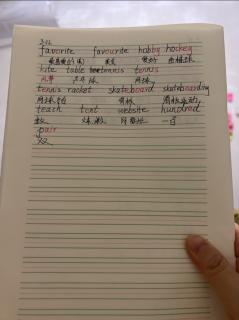 favorite favourite hobby hockey
最喜爱的(美) 英式 爱好 曲棍球
kite table tennis tennis
风筝 乒乓球 网球
tennis racket skateboard skateboarding
网球拍 滑板 滑板运动
teach tent website hundred
教 帐篷 网址 一百
pair
双